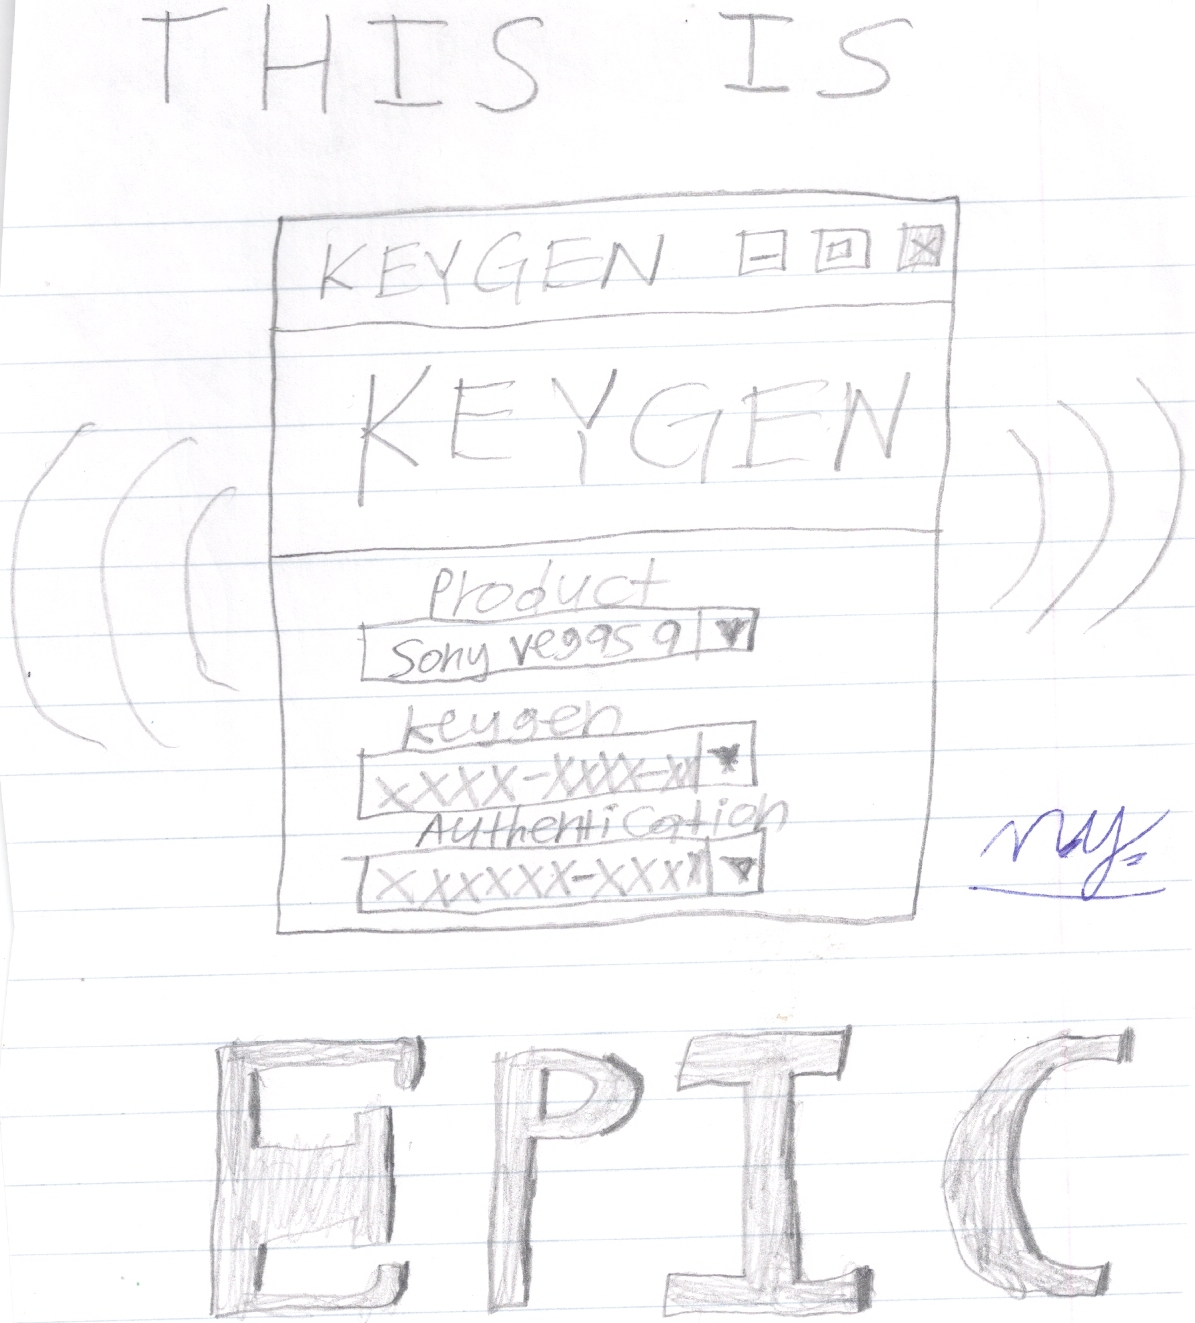 THIS IS
KEYGEN
KEYGEN
Product
Sony vegas 9
keygen
xxxx-xxxx-xx
Authentication
xxxxxx-xxxx
EPIC